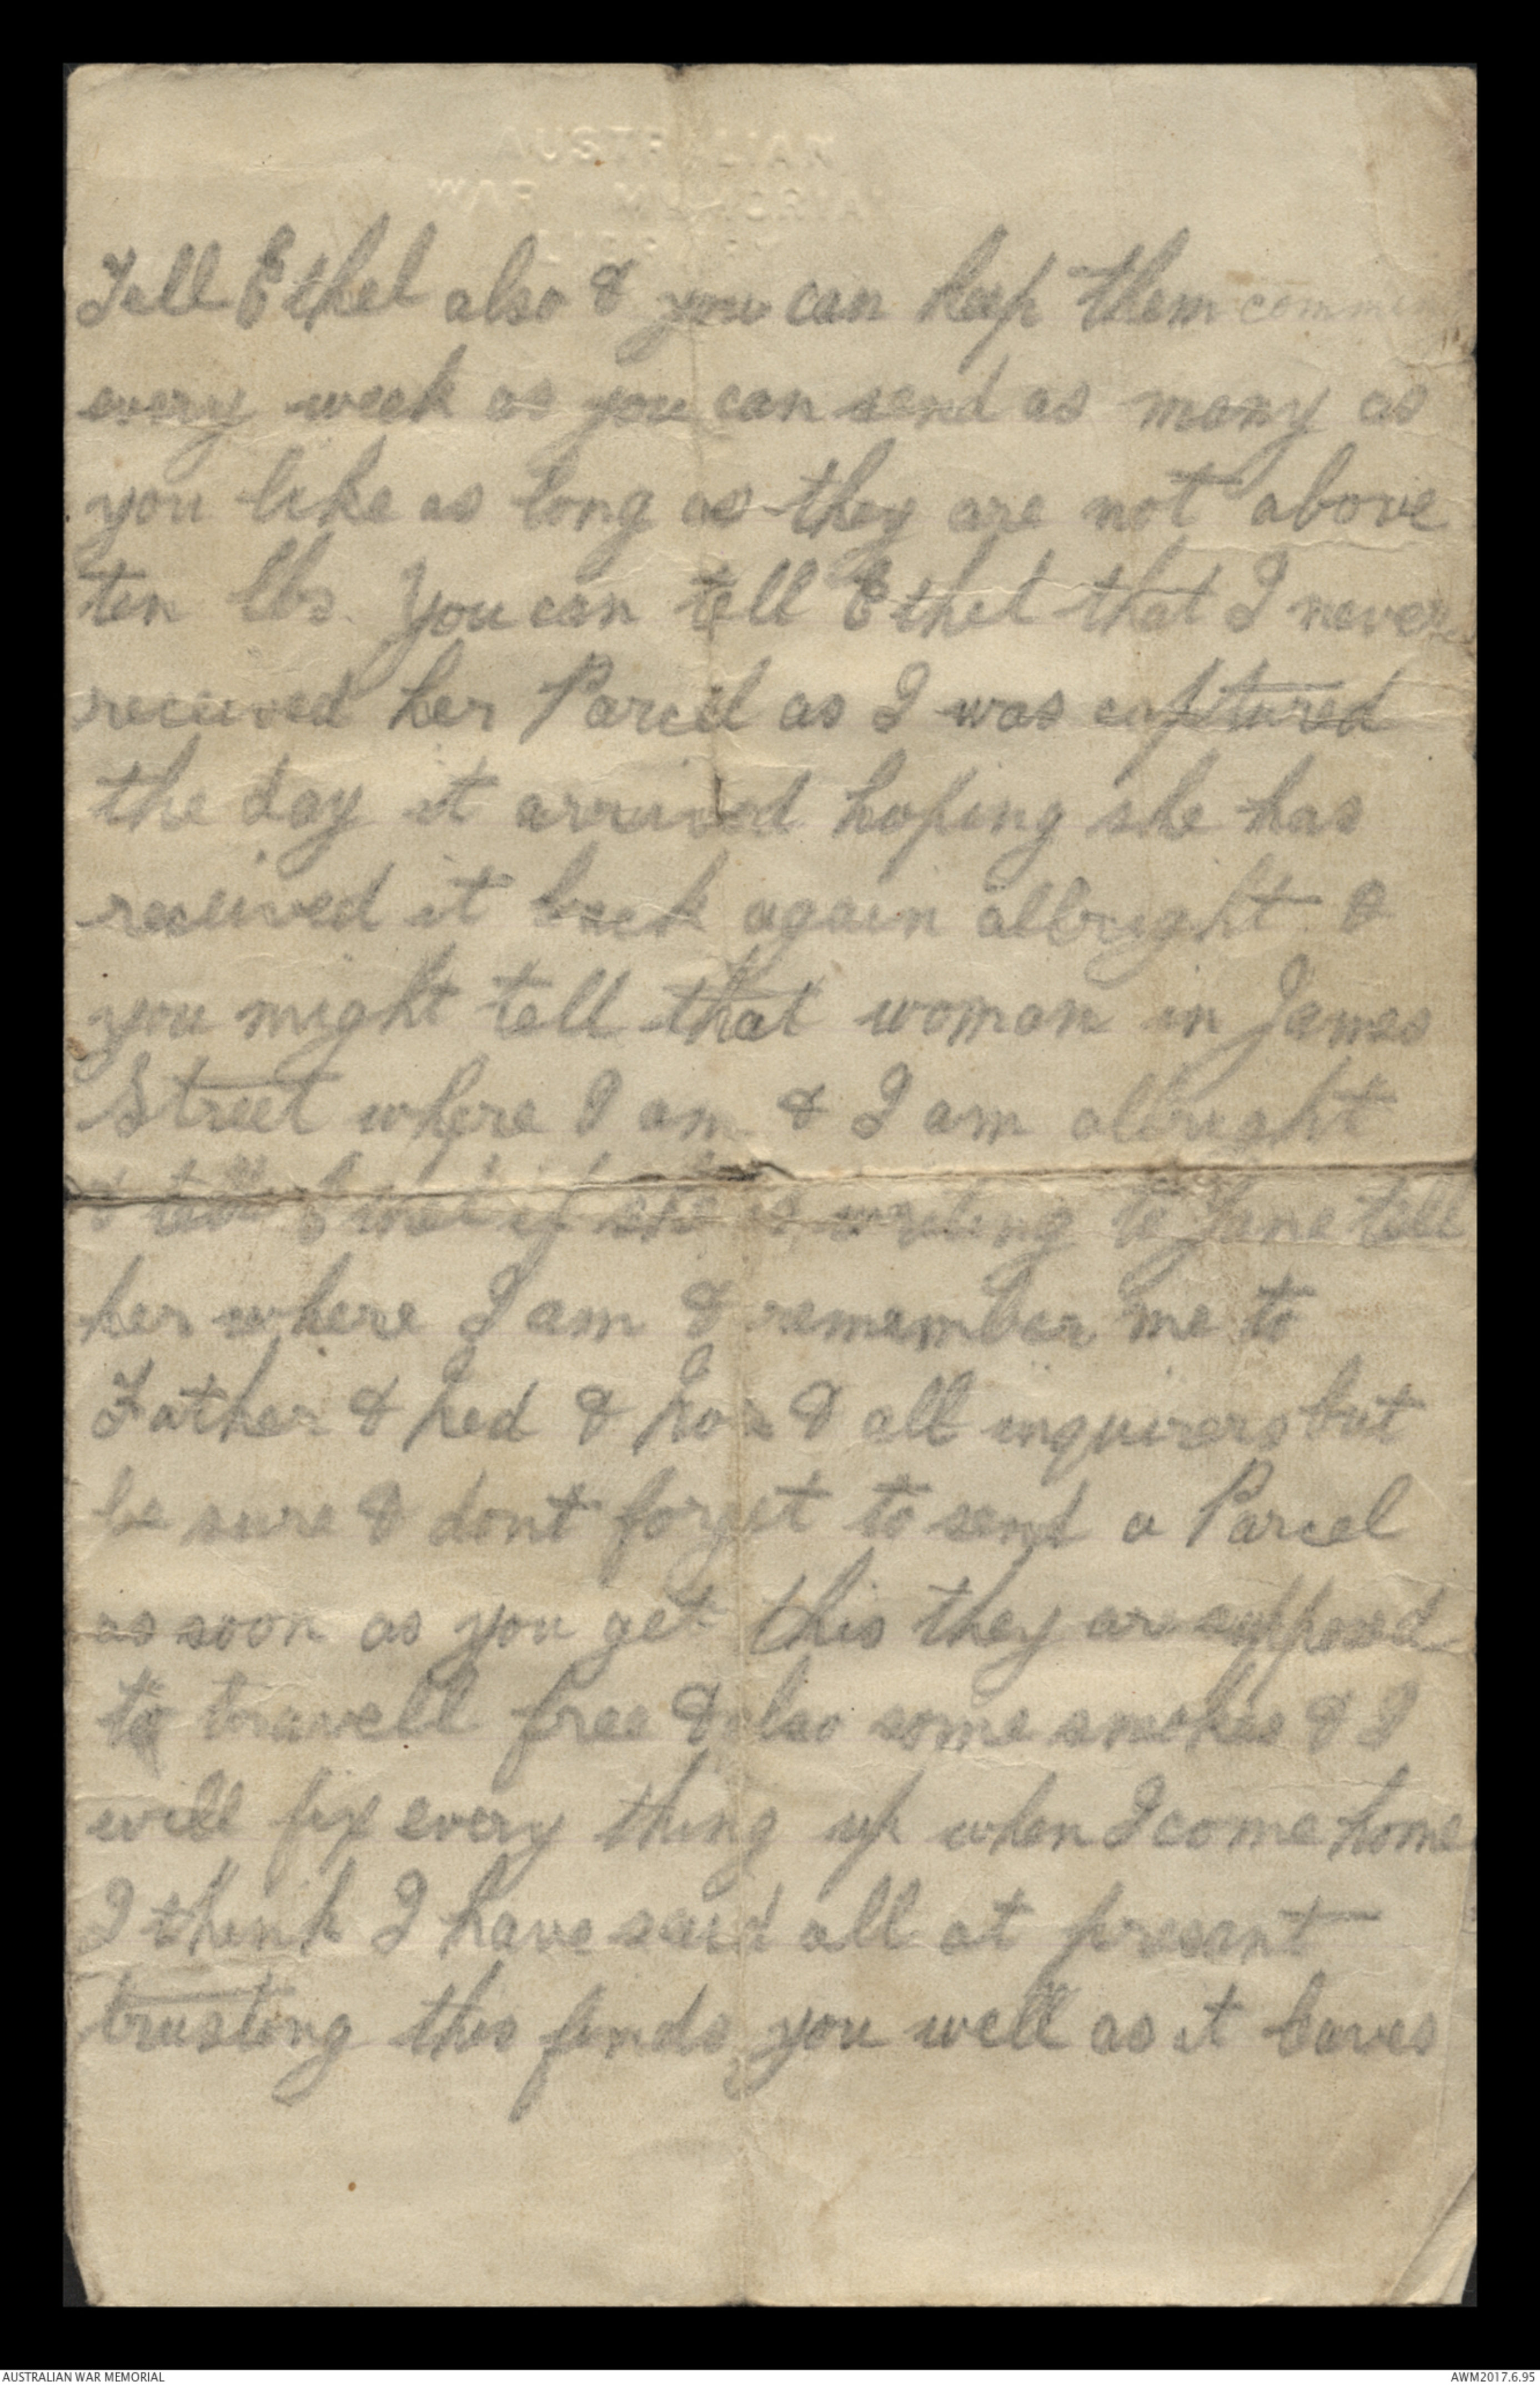 AUSTRALIAN
WAR MEMORIAL
LIBRARY
Tell Ethel also & you can keep them
every week as you can send as many as
you like as long as they are not above
ten lbs. You can tell Ethel that I never
received her Parcel as I was captured
the day it arrived hoping she has
received it back again allright &
you might tell that woman in James
Street where I am & I am allright
& tell Ethel if she is writing to Jane tell
her where I am & remember me to
Father & Ned & & all inquirers but
be sure & dont forget to send a Parcel
as soon as you get this they are supposed
to travell free & also some smokes & I
will fix every thing up when I come home
I think I have said all at presant
trusting this finds you well as it leaves
AUSTRALIAN WAR MEMORIAL
AWM2017.6.95